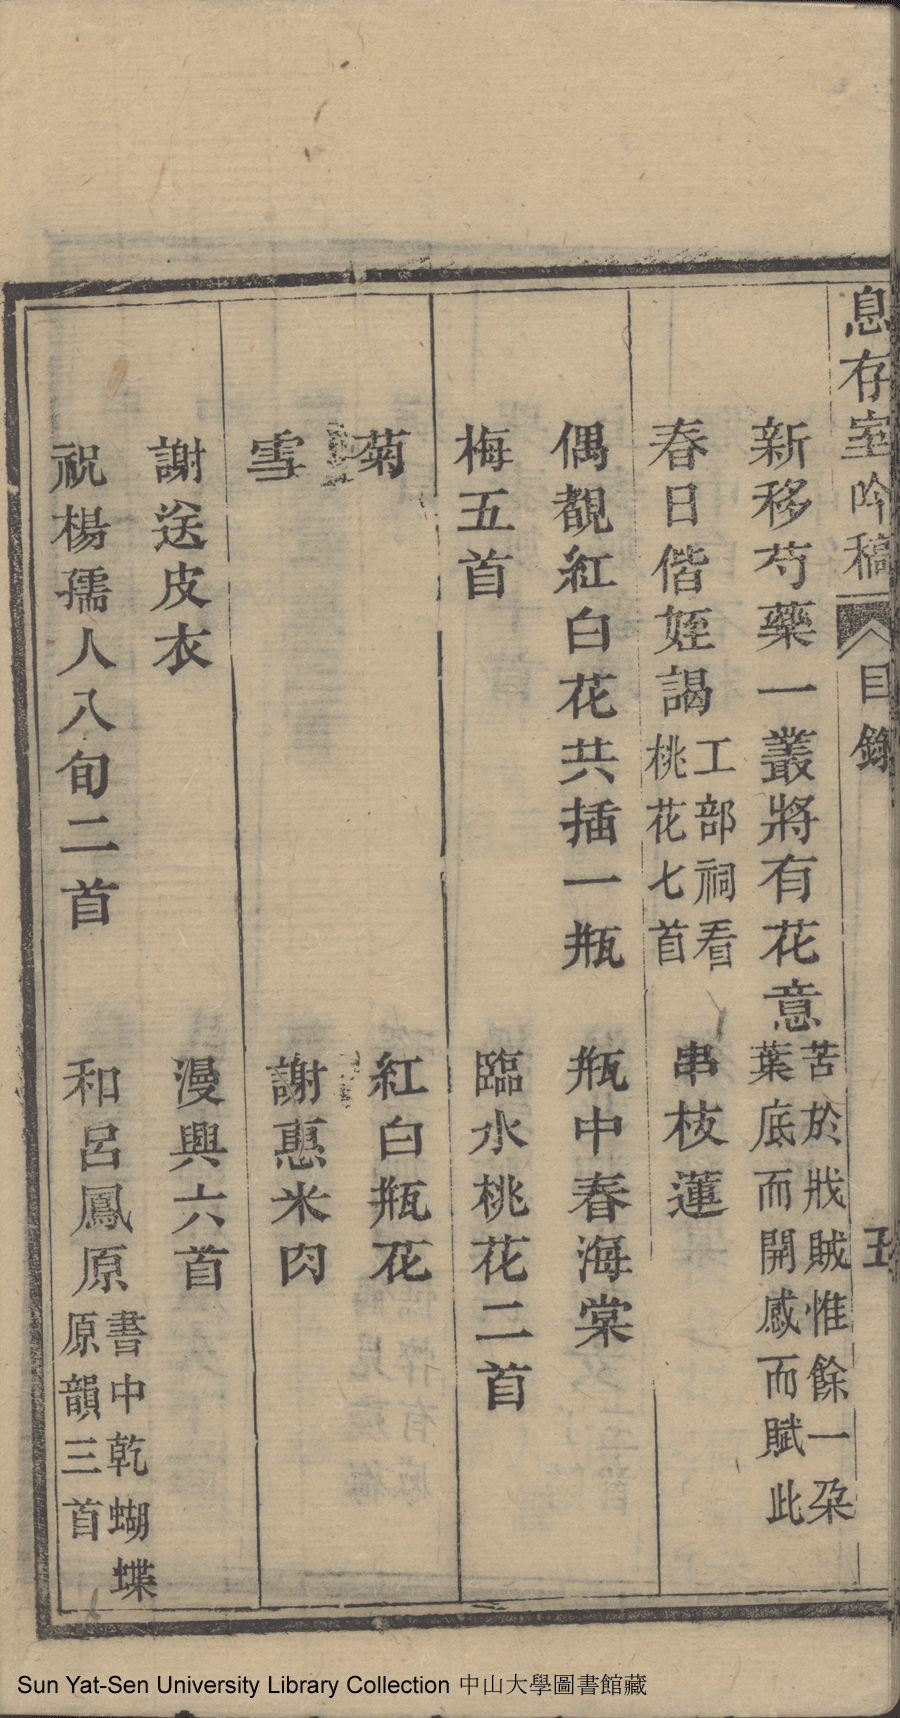 息存室吟稿 目錄 五
新移芍藥一叢將有花意苦於戕賊惟餘一朶
葉底而開感而賦此
春日偕姪謁工部祠看
桃花七首 串枝蓮
偶覩紅白花共插一瓶 瓶中春海棠
梅五首 臨水桃花二首
菊 紅白瓶花
雪 謝惠米肉
謝送皮衣 漫興六首
祝楊孺人八旬二首 和呂鳳原書中乾蝴蝶
原韻三首
Sun Yat-Sen University Library Collection 中山大學圖書館藏